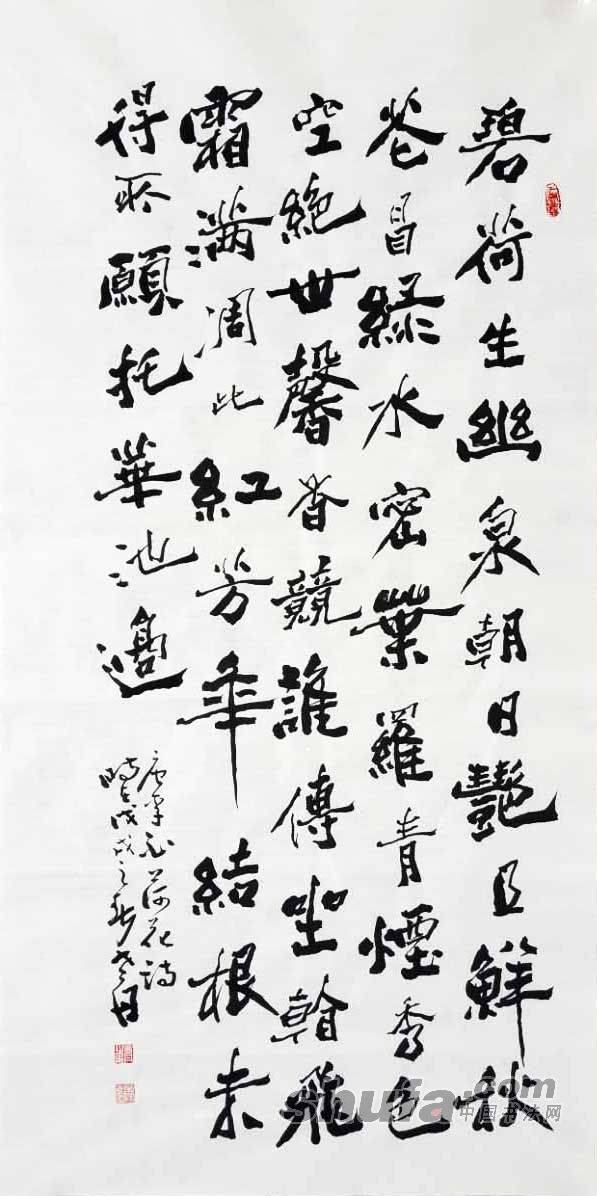 碧荷生幽泉朝日艷且鮮秋
花冒綠水密葉羅青煙秀色
空絕世馨香競誰傳坐看飛
霜滿凋此紅芳年結根未
得所願托華池邊
唐李白荷花詩
時在戊戌之
shufa.com
中国书法网